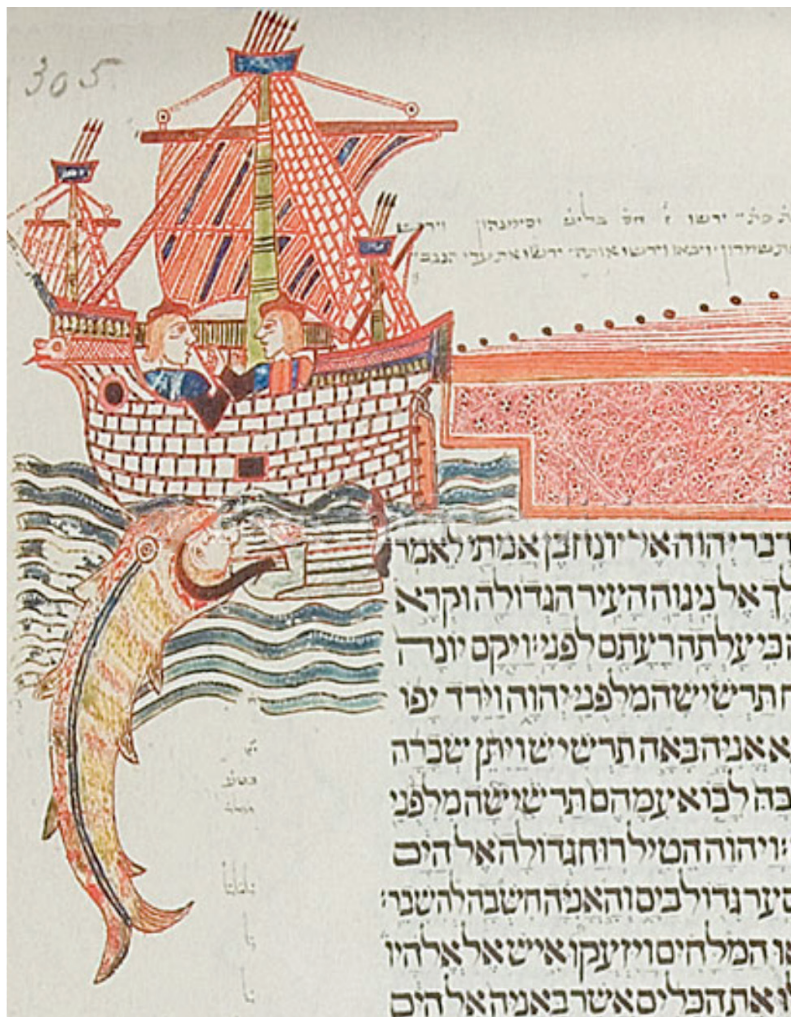 305
ירשו ז̇ חס̇ בליש̇ וסימנהון
ויבאו וירשו אותה ירשו את ערי הנגב
דבר יהוה אל יונה בן אמתי לאמר
לך אל נינוה העיר הגדולה וקרא
כי עלתה רעתם לפני׃ ויקם יונה
תרשישה מלפני יהוה וירד יפו
אניה באה תרשיש ויתן שכרה
בה לבוא עמהם תרשישה מלפני
ויהוה הטיל רוח גדולה אל הים
סער גדול בים והאניה חשבה להשבר׃
המלחים ויזעקו איש אל אלהיו
את הכלים אשר באניה אל הים